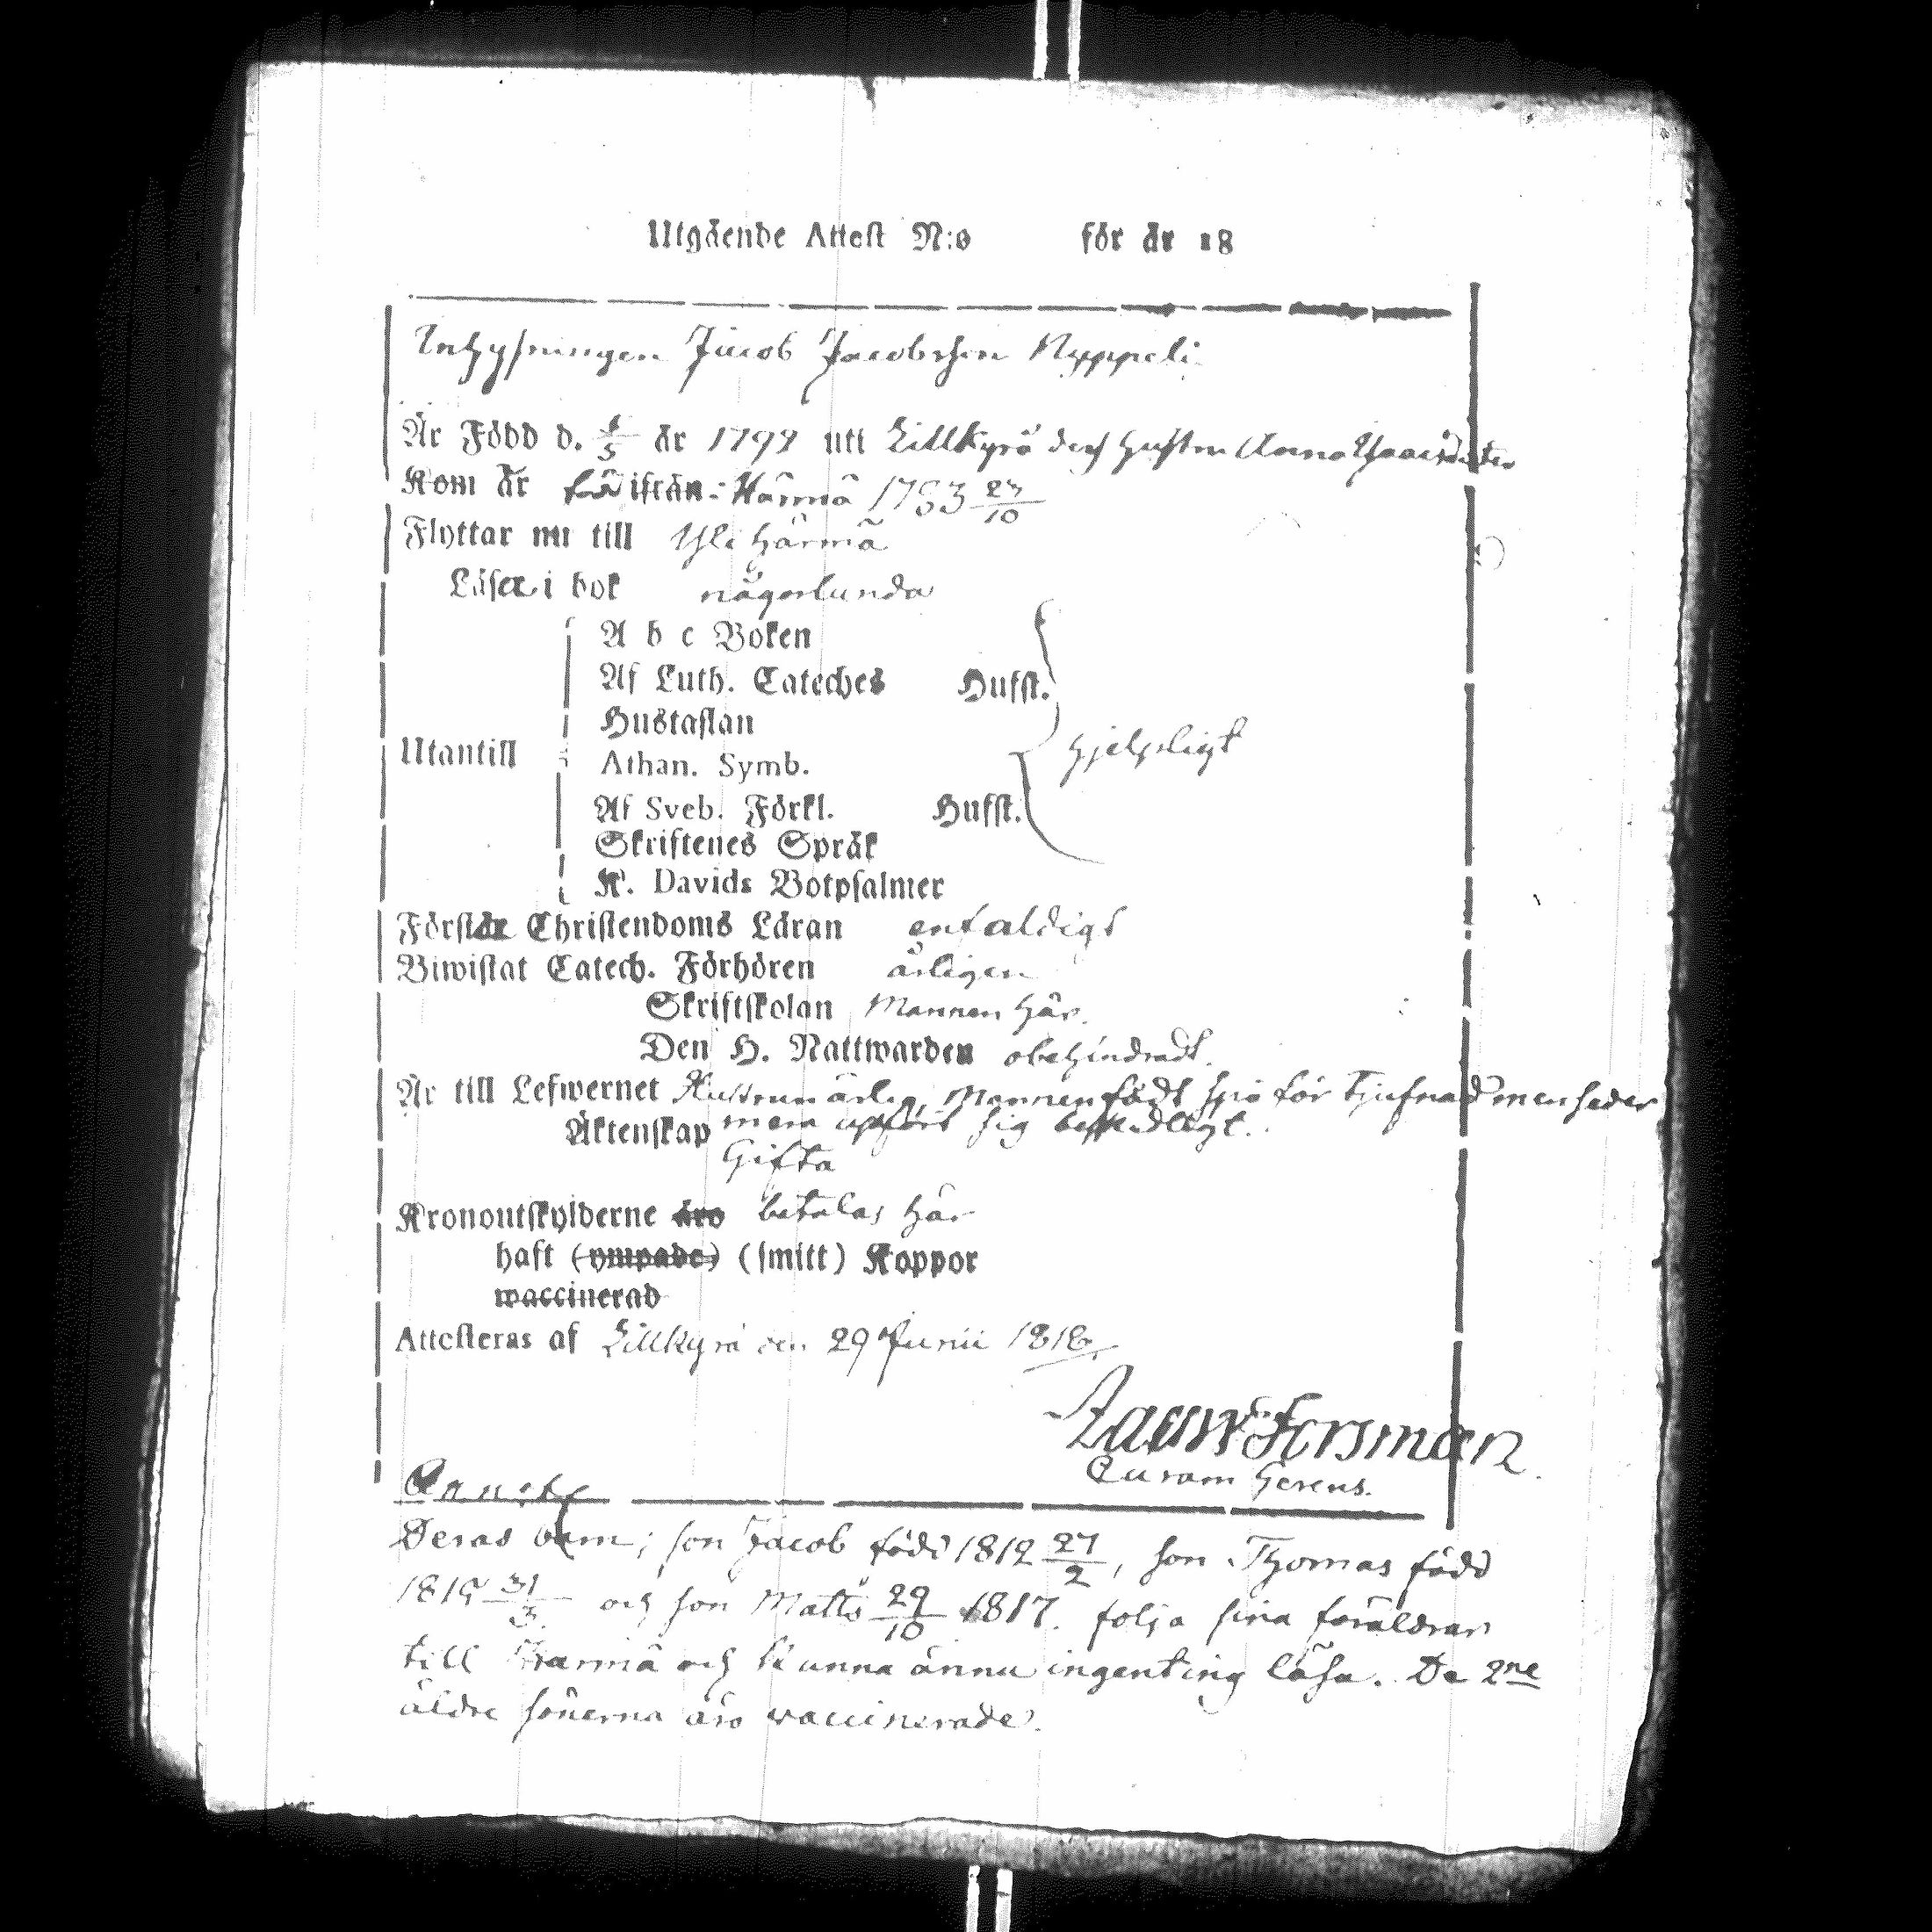 Utgående Attest N:o för år 18
Inhysningen Jacob Jacobsson Nyppeli
Är Född d. 6/5 år 1792 uti Lillkyro dess hustru Anna
Kom år ifrån Härmä 1783 27/10
Flyttar nu till Yli härmä
Läsa i bok någorlunda
A b c Boken
Af Luth. Cateches Hufst.
Hustaflan
Utantill Athan. Symb. hjelpligt
Af Sveb. Förkl. Hufst.
Skriftenes Språk
K. Davids Botpsalmer
Förstår Christendoms Läran enfaldigt
Biwistat Catech. Förhören årligen
Skriftskolan Mannen här.
Den H. Nattwarden obehindradt.
Är till Lefwernet Hustrun ärlig, Mannen för Tjufnad men seder
Äktenskap mera upfört sig beskedligt.
Gifta
Kronoutskylderne äro betalas här
haft (ympade) (smitt) Koppor
waccinerad
Attesteras af Lillkyro den 29 Junii 1818
Forsman
Curam Gerens.
Deras barn; son Jacob född 1812 27/2, son Thomas född
1815 31/3. och son Matts 29/10 1817. följa sina föräldrar
till Harmä och kunna ännu ingenting läsa. De 2ne
äldre sönerna äro waccinerade.